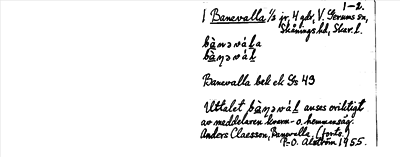 1-2.
1 Banevalla, 1/2 jr, 4 gdr, V. Gerums sn,
Skånings hd, Skar. l.
bànəvál̲a
bànəvál̲
Banevalla bek ek Gs 49
Uttalet bànəvál̲ anses oriktigt
av meddelaren kronn- o. hemmansäg.
Anders Claesson, Banevalla. (forts.)
P.-O. Alström 1955.